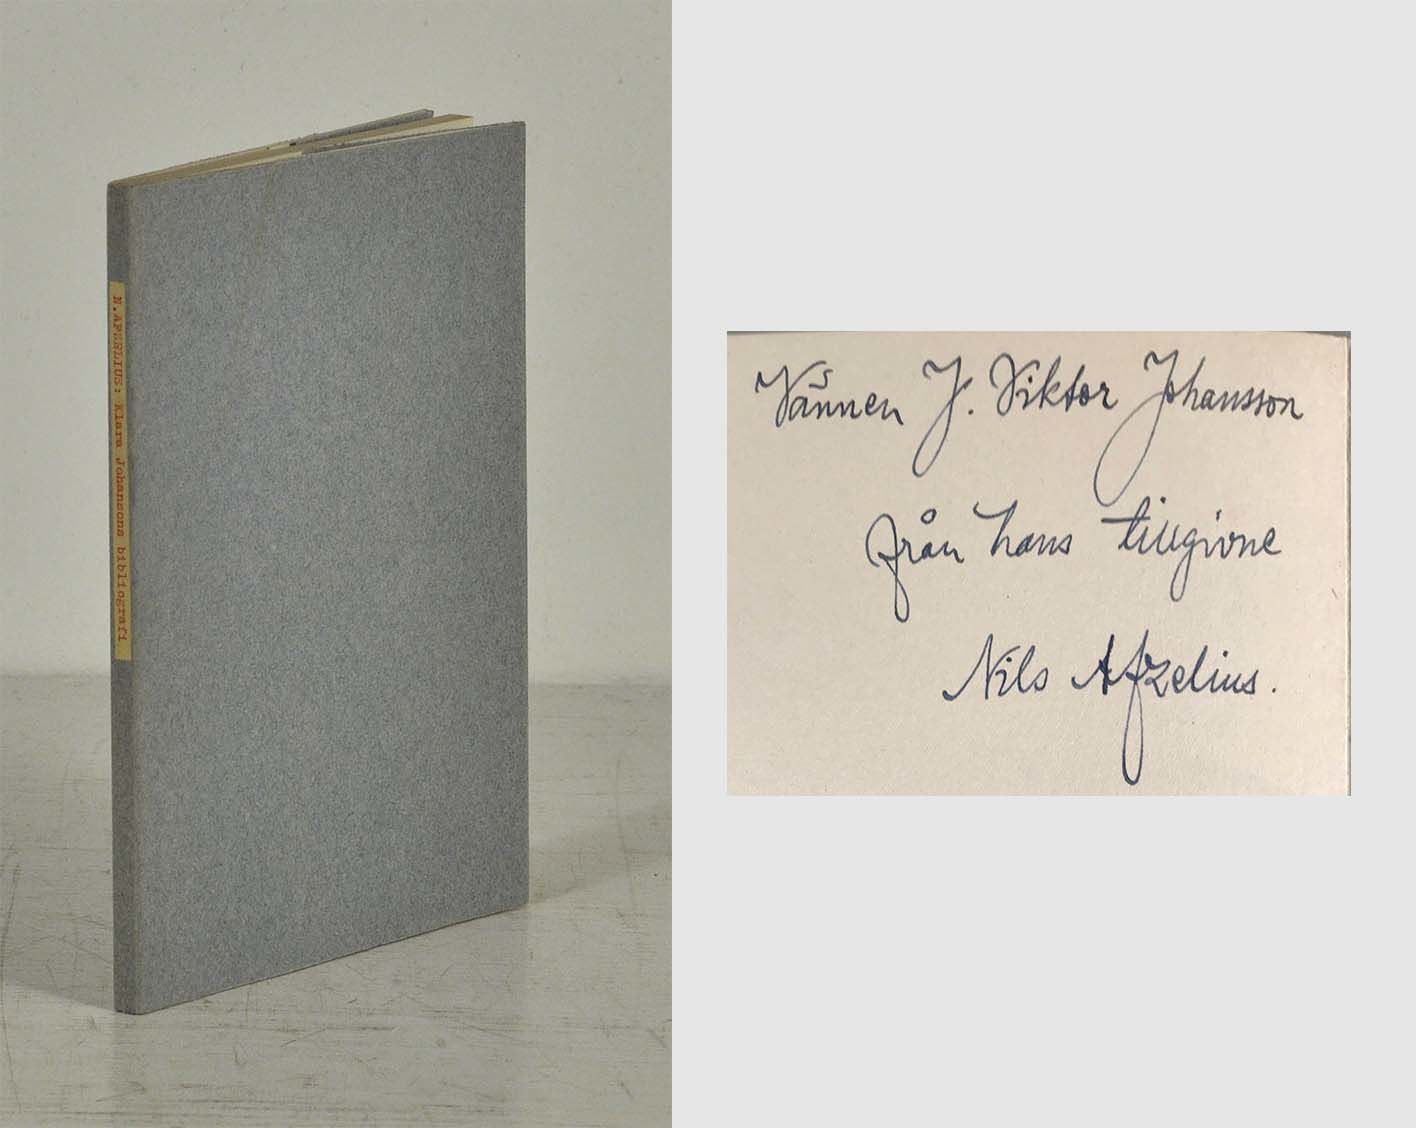 N. AFZELIUS: Klara Johansons bibliografi
Vännen J. Viktor Johansson
från hans tillgivne
Nils Afzelius.